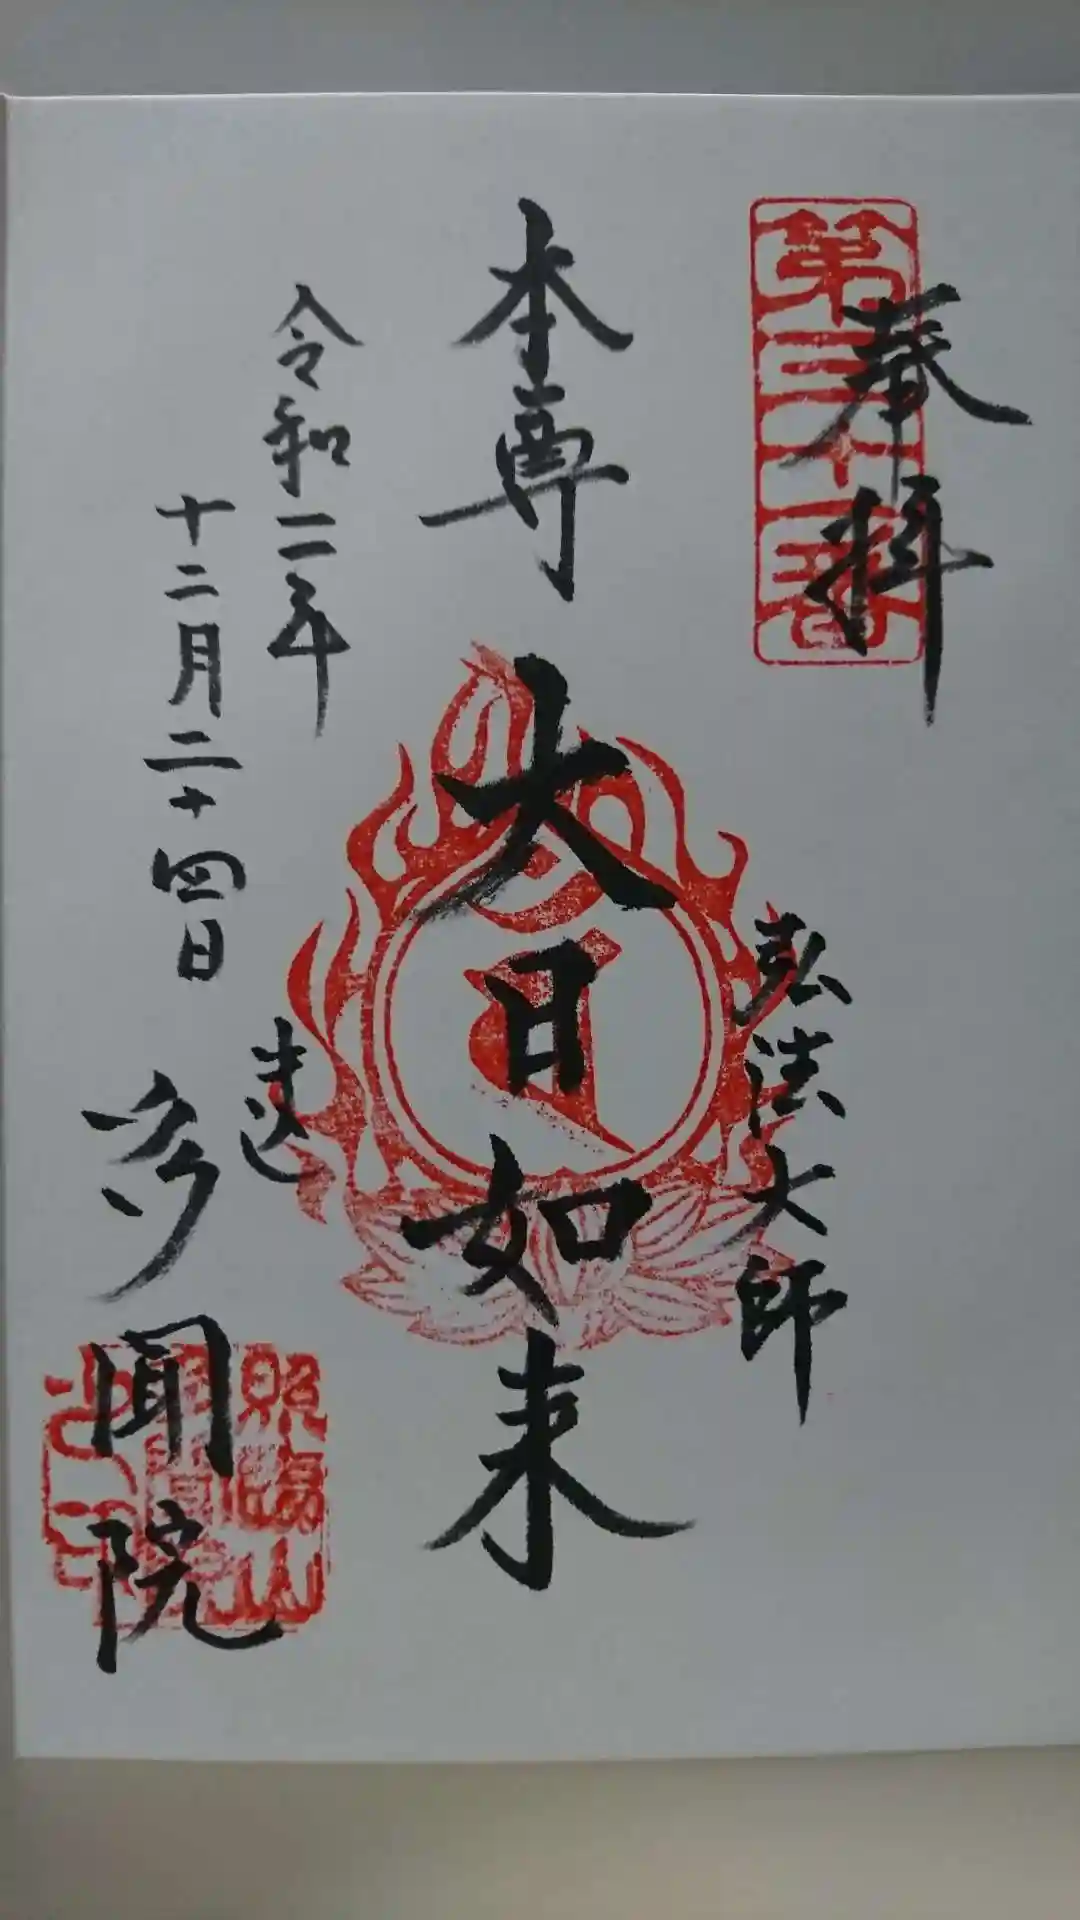 奉拝
第三十番
弘法大師
本尊
大日如来
令和二年
十二月二十四日
多聞院